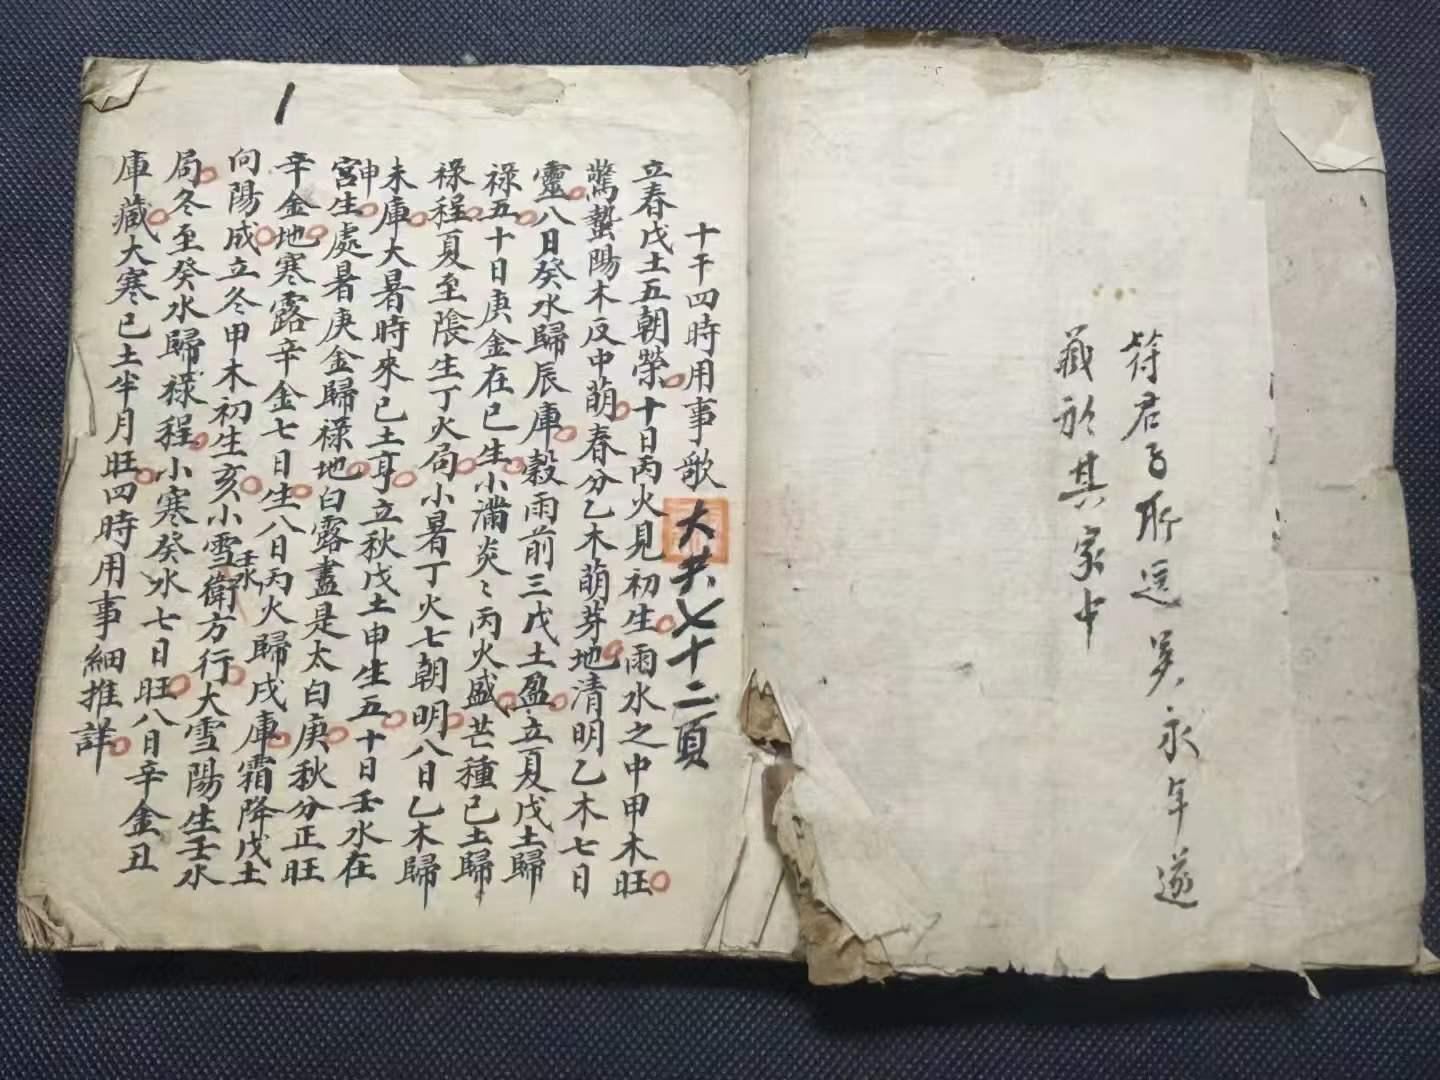 符君子所送吴永年遂
藏於其家中
十干四時用事歌 大共七十二頁
立春戊土五朝榮十日丙火見初生雨水之中甲木旺
驚蟄陽木反中萌春分乙木萌芽地清明乙木七日
靈八日癸水歸辰庫穀雨前三戊土盈立夏戊土歸
祿五十日庚金在巳生小滿炎〻丙火盛芒種己土歸
祿程夏至陰生丁火局小暑丁火七朝明八日乙木歸
未庫大暑時來己土亨立秋戊土申生五十日壬水在
申宮生處暑庚金歸祿地白露盡是太白庚秋分正旺
辛金地寒露辛金七日生八日丙火歸戌庫霜降戊土
向陽成立冬甲木初生亥小雪壬水衛方行大雪陽生壬水
局冬至癸水歸祿程小寒癸水七日旺八日辛金丑
庫藏大寒己土半月旺四時用事細推詳
1